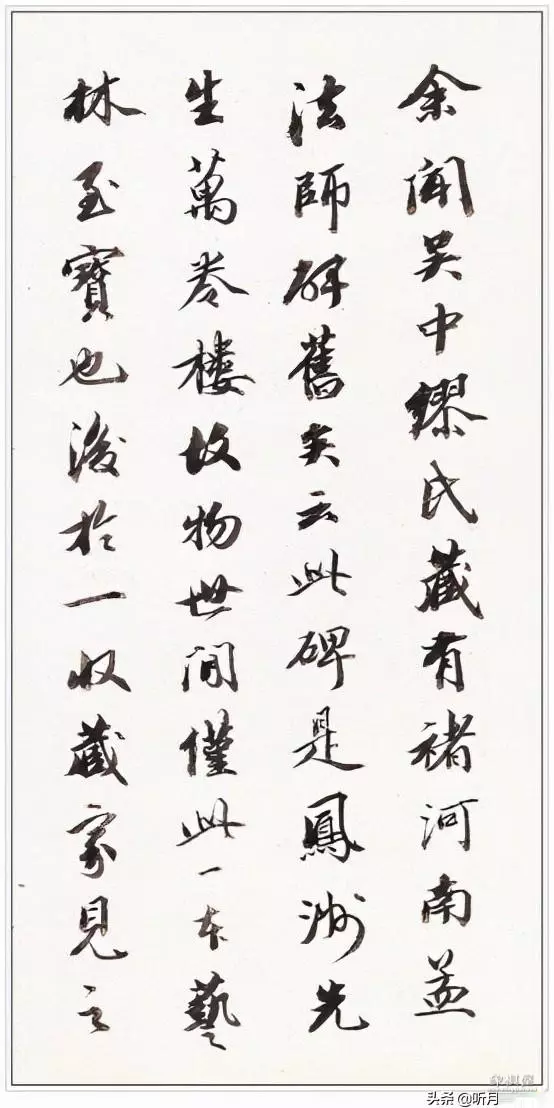 余聞吴中繆氏藏有褚河南孟
法師碑舊矣云此碑是鳳洲先
生萬卷樓故物世間僅此一本藝
林至寶也後於一收藏家見之
头条 @听月